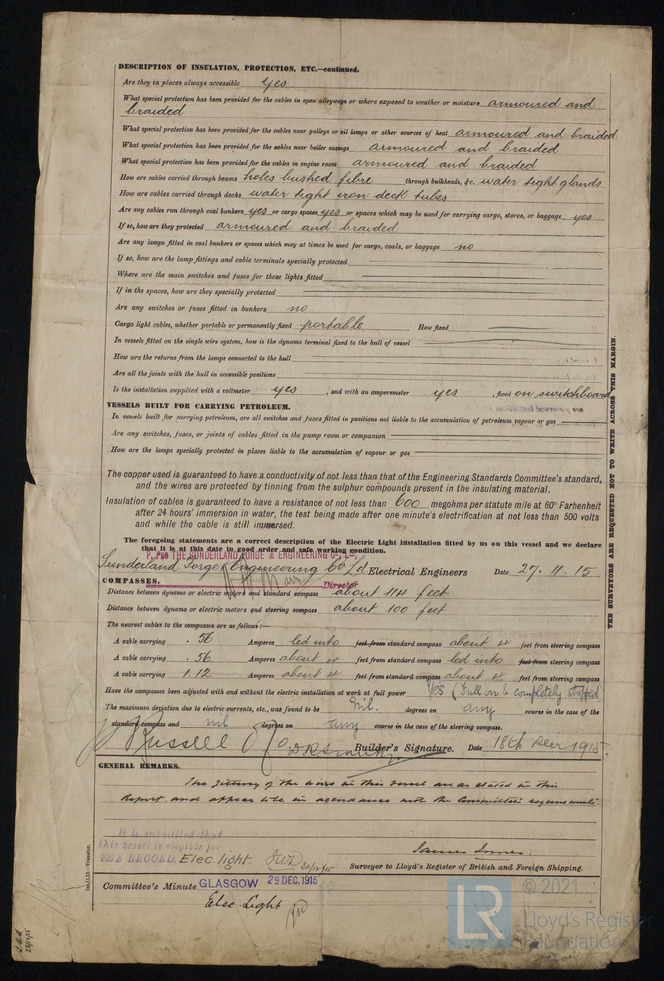 DESCRIPTION OF INSULATION, PROTECTION, ETC.—continued.
Are they in places always accessible yes
What special protection has been provided for the cables in open alleyways or where exposed to weather or moisture armoured and
braided
What special protection has been provided for the cables near galleys or oil lamps or other sources of heat armoured and braided
What special protection has been provided for the cables near boiler casings armoured and braided
What special protection has been provided for the cables in engine room armoured and braided
How are cables carried through beams holes bushed fibre through bulkheads, &c. water tight glands
How are cables carried through decks water tight iron deck tubes
Are any cables run through coal bunkers yes or cargo spaces yes or spaces which may be used for carrying cargo, stores, or baggage yes
If so, how are they protected armoured and braided
Are any lamps fitted in coal bunkers or spaces which may at times be used for cargo, coals, or baggage no
If so, how are the lamp fittings and cable terminals specially protected
Where are the main switches and fuses for these lights fitted
If in the spaces, how are they specially protected
Are any switches or fuses fitted in bunkers no
Cargo light cables, whether portable or permanently fixed portable How fixed
In vessels fitted on the single wire system, how is the dynamo terminal fixed to the hull of vessel
How are the returns from the lamps connected to the hull
Are all the joints with the hull in accessible positions
Is the installation supplied with a voltmeter yes , and with an amperemeter yes , fixed on switchboard
VESSELS BUILT FOR CARRYING PETROLEUM.
In vessels built for carrying petroleum, are all switches and fuses fitted in positions not liable to the accumulation of petroleum vapour or gas
Are any switches, fuses, or joints of cables fitted in the pump room or companion
How are the lamps specially protected in places liable to the accumulation of vapour or gas
The copper used is guaranteed to have a conductivity of not less than that of the Engineering Standards Committee's standard,
and the wires are protected by tinning from the sulphur compounds present in the insulating material.
Insulation of cables is guaranteed to have a resistance of not less than 600 megohms per statute mile at 60° Farhenheit
after 24 hours' immersion in water, the test being made after one minute's electrification at not less than 500 volts
and while the cable is still immersed.
The foregoing statements are a correct description of the Electric Light installation fitted by us on this vessel and we declare
that it is at this date in good order and safe working condition.
THE SUNDERLAND FORGE & ENGINEERING Co. Ld.
Sunderland Forge & Engineering Co Ld Electrical Engineers Date 27.11.15
Director
COMPASSES.
Distance between dynamo or electric motors and standard compass about 114 feet
Distance between dynamo or electric motors and steering compass about 100 feet
The nearest cables to the compasses are as follows:—
A cable carrying .56 Amperes led into feet from standard compass about 4 feet from steering compass
A cable carrying .56 Amperes about 4 feet from standard compass led into feet from steering compass
A cable carrying 1.12 Amperes about 4 feet from standard compass about 4 feet from steering compass
Have the compasses been adjusted with and without the electric installation at work at full power Yes (Full on & completely stopped
The maximum deviation due to electric currents, etc., was found to be Nil. degrees on any course in the case of the
standard compass and nil degrees on any course in the case of the steering compass.
Russell & Co. Builder's Signature. Date 18th Decr 1915
GENERAL REMARKS.
The fitting of the wires in this vessel are as stated in this
Report and appear to be in accordance with the Committee's requirements.
It is submitted that
this vessel is eligible for
THE RECORD. Elec. light. 30/12/15
James
Surveyor to Lloyd's Register of British and Foreign Shipping.
Committee's Minute GLASGOW 29 DEC. 1915
Elec. Light
THE SURVEYORS ARE REQUESTED NOT TO WRITE ACROSS THIS MARGIN.
LR © 2021
Lloyd's Register
Foundation